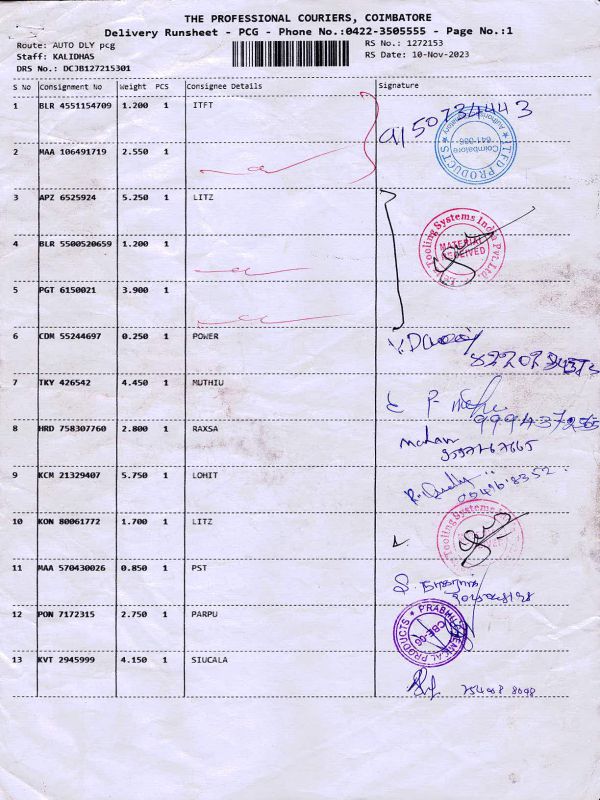 THE PROFESSIONAL COURIERS, COIMBATORE
Delivery Runsheet - PCG - Phone No.:0422-3505555 - Page No.:1
Route: AUTO DLY pcg RS No.: 1272153
Staff: KALIDHAS RS Date: 10-Nov-2023
DRS No.: DCJB127215301
S No Consignment No Weight PCS Consignee Details Signature
1 BLR 4551154709 1.200 1 ITFT
2 MAA 106491719 2.550 1
ITFD PRODUCTS Coimbatore 641-036
3 APZ 6525924 5.250 1 LITZ
4 BLR 5500520659 1.200 1
Tooling Systems India Pvt. Ltd. MATERIAL RECEIVED
5 PGT 6150021 3.900 1
6 CDM 55244697 0.250 1 POWER
7 TKY 426542 4.450 1 MUTHIU
8 HRD 758307760 2.800 1 RAXSA
mohan
9 KCM 21329407 5.750 1 LOHIT
10 KON 80061772 1.700 1 LITZ
Tooling Systems
11 MAA 570430026 0.850 1 PST
12 PON 7172315 2.750 1 PARPU
PRABHU CHEMICAL PRODUCTS CBE-06
13 KVT 2945999 4.150 1 SIUCALA